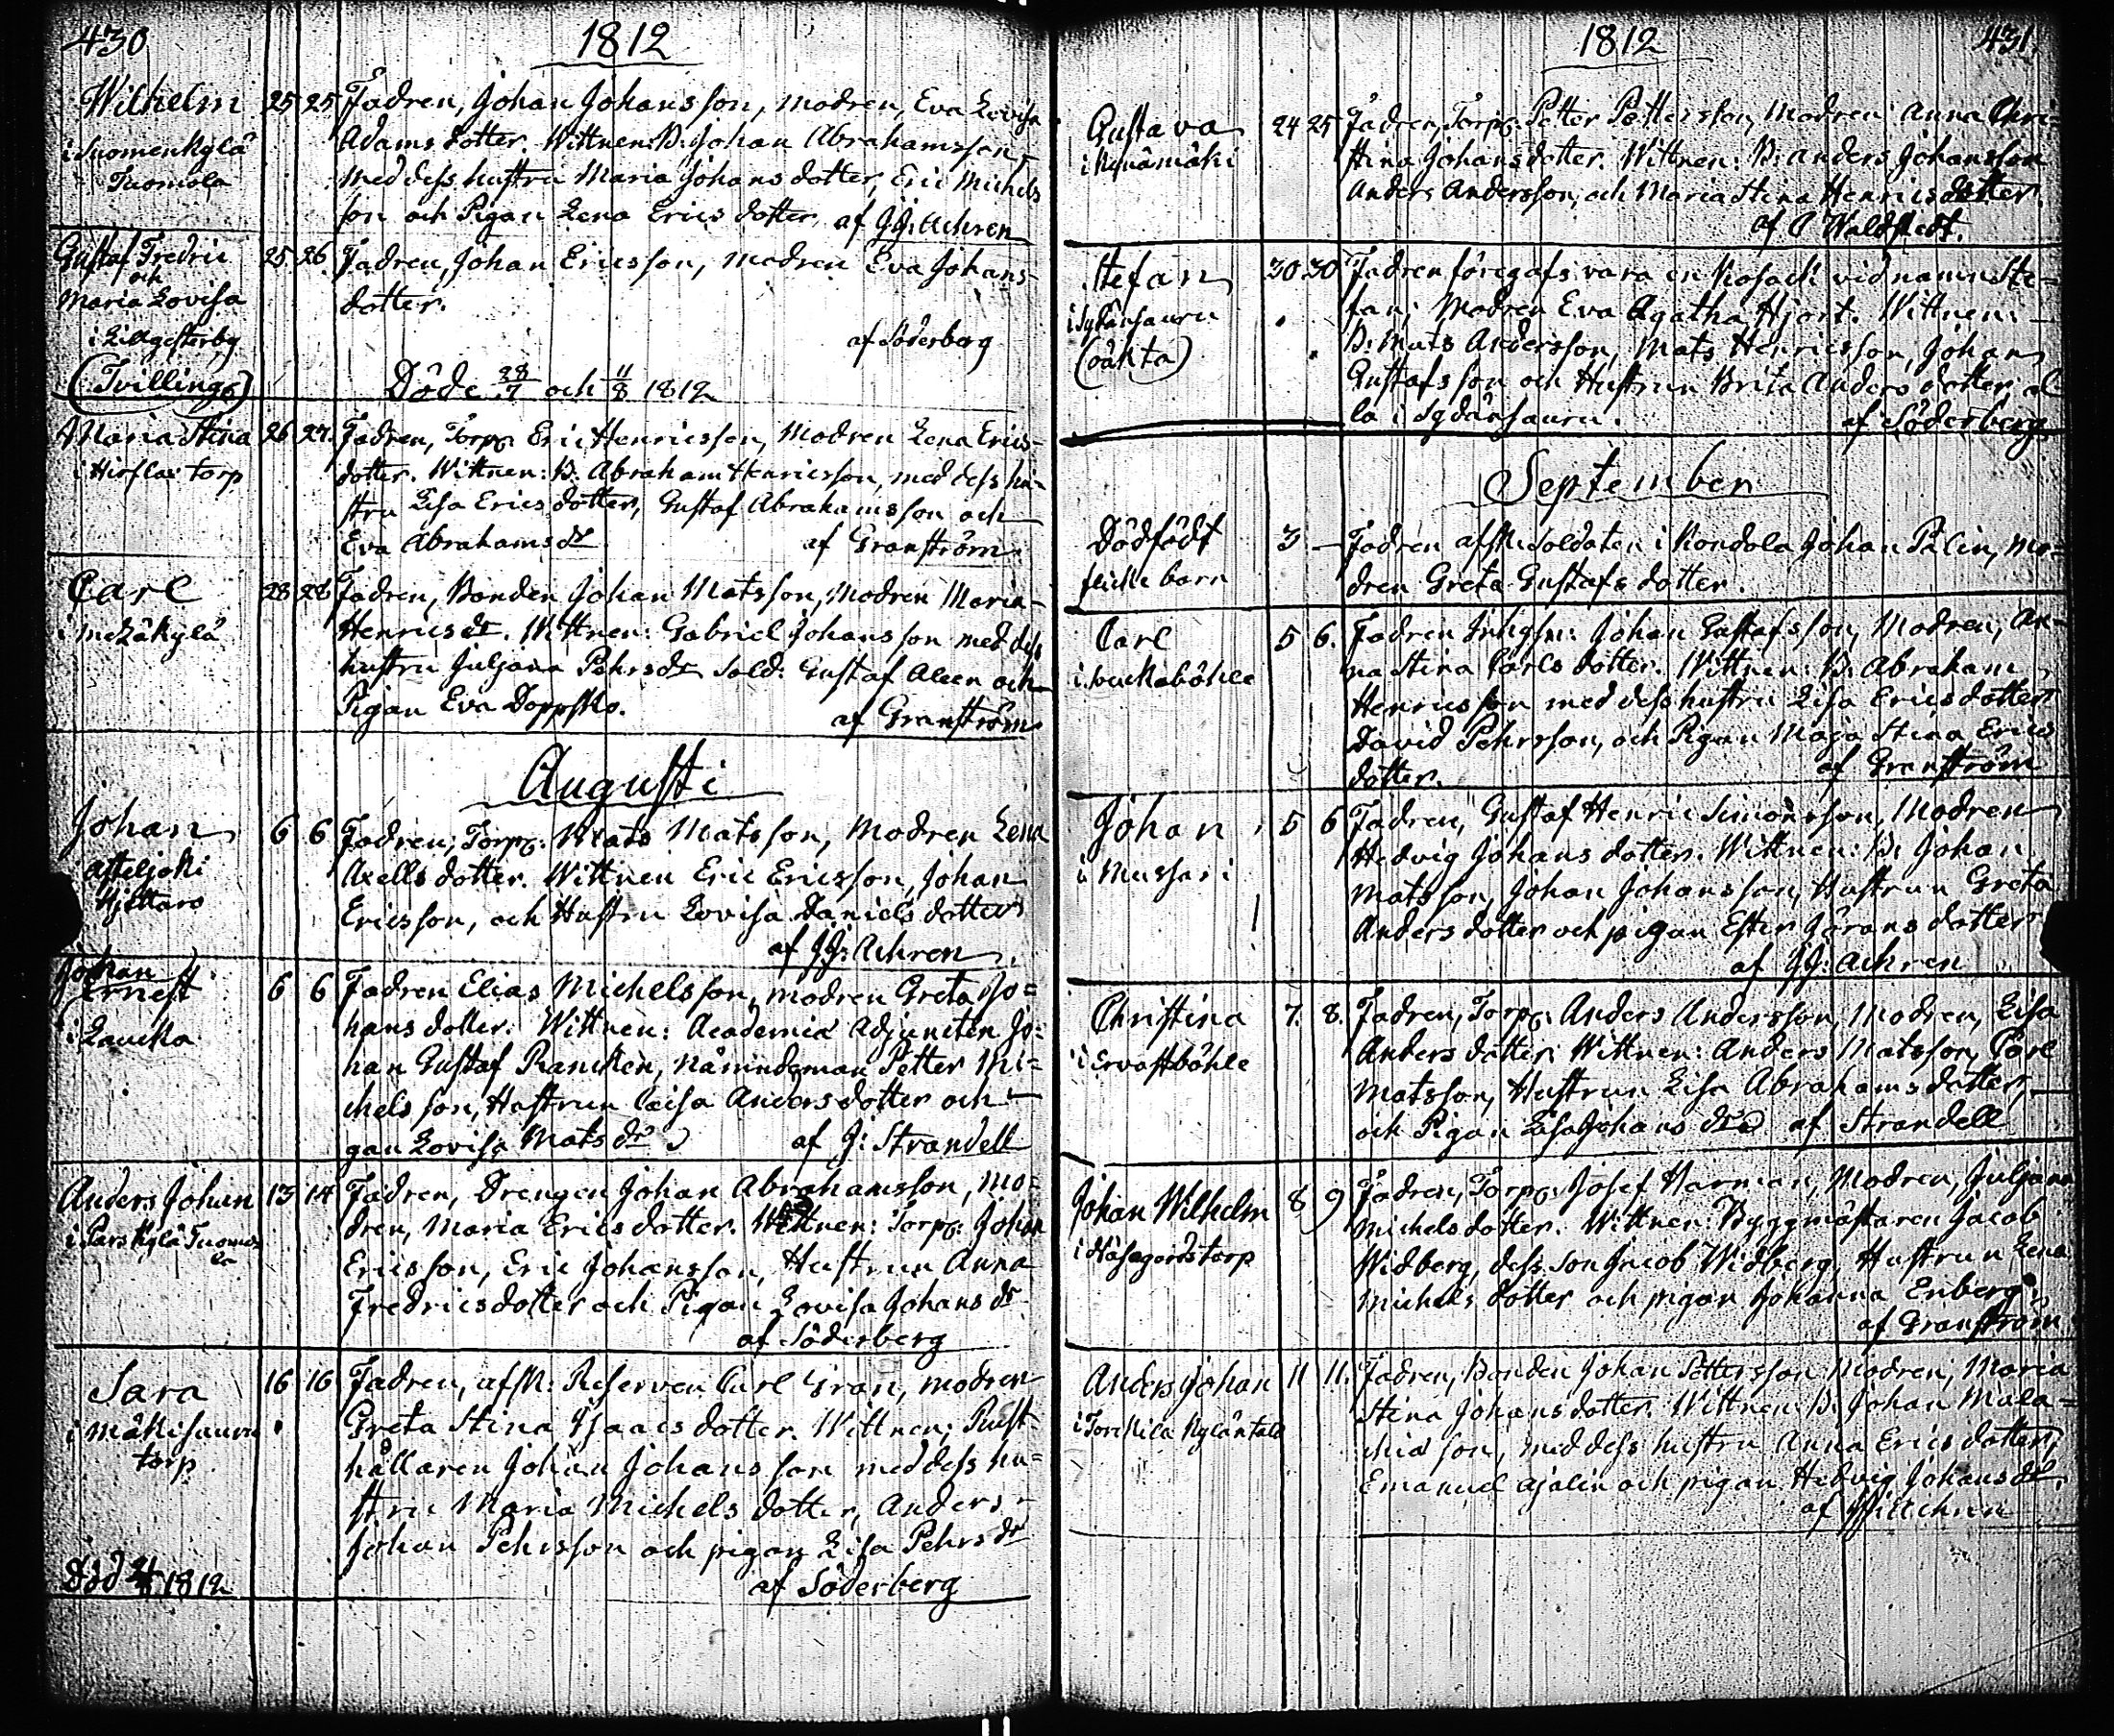 430
1812
Wilhelm 25 25 Fadren, Johan Johansson, modren, Eva Lovisa
i Suomenkylä Adams dotter. Wittnen: B: Johan Abrahamsson,
Tuomola med dess hustru Maria Johans dotter, Eric Michels
son och Pigan Lena Erics dotter af JJ: Achren
Gustaf Fredric 25. 26. Fadren, Johan Ericsson, modren Eva Johans-
och
Maria Lovisa dotter.
i Lillgesterby af Söderberg
(Tvillingar) Döde 28/7 och 11/8 1812
Maria Stina 26 27. Fadren, Torp: Eric Henricsson, Modren Lena Erics-
i Hirsla: torp dotter. Wittnen: B: Abraham Henricsson, med dess hu-
stru Lisa Erics dotter, Gustaf Abrahamsson och
Eva Abrahams dr af Granström
Carl 28 28 Fadren, Bonden Johan Matsson, Modren Maria
i Mezäkylä Henrics dr. Wittnen: Gabriel Johansson med dess
hustru Juljana Pehrs dr Sold: Gustaf Aleen och
Pigan Eva Doppsko. af Granström
Augusti
Johan 6 6 Fadren, Torp: Mats Matsson, Modren Lena
Axells dotter. Wittnen Eric Ericsson, Johan
Ericsson, och Hustru Lovisa Daniels dotter
af JJ: Achren
Johan
Ernest 6 6 Fadren Elias Michelsson, modren Greta Jo=
i Laucka hans dotter. Wittnen: Academiæ Adjuncten Jo-
han Gustaf Rancken, nämndeman Petter Mi=
chelsson, Hustrun Caisa Anders dotter och
gan Lovisa Mats dr af J: Strandell
Anders Johan 13 14 Fadren, Drengen Johan Abrahamsson, mo=
i Parskylä Tuomo- dren, Maria Erics dotter. Wittnen: Torp: Johan
la Ericsson, Eric Johansson, Hustrun Anna
Fredrics dotter och Pigan Lovisa Johans dr
af Söderberg
Sara 16 16 Fadren, afsk: Reserven Carl Gran, modren
i Mäkisauru Greta Stina Isaacs dotter. Wittnen: Rust-
torp hållaren Johan Johansson med dess hu=
stru Maria Michels dotter, Anders
Johan Pehrsson och pigan Lisa Pehrs dr
Död 1812 af Söderberg
1812
431.
Gustava 24 25 Fadren, Torp: Petter Pettersson, Modren Anna Chri-
stina Johans dotter. Wittnen: B: Anders Johansson
Anders Andersson, och Maria Stina Henrics dotter.
af Waldstedt.
Stefan 30 30 Fadren föregafs vara en Kosack vid namn Ste-
i Sydänsauru fan; Modren Eva Agatha Hjort. Wittnen:
(oäkta) B: Mats Andersson, Mats Henricsson, Johan
Gustafsson och Hustrun Brita Anders dotter al
la i Sydänsauru. af Söderberg
September
Dödfödt 3 — Fadren afsk: Soldaten i Kondola Johan Palin, Mo-
flicke barn dren Greta Gustafs dotter.
Carl 5 6. Fadren Inhysn: Johan Gustafsson, Modren, An-
na Stina Carls dotter. Wittnen: B: Abraham
Henricsson med dess hustru Lisa Erics dotter
David Pehrsson, och Pigan Maja Stina Erics
dotter. af Granström
Johan 5 6 Fadren, Gustaf Henric Simonsson, Modren
i Mussari Hedvig Johans dotter. Wittnen: B: Johan
Matsson, Johan Johansson, Hustrun Greta
Anders dotter och pigan Ester Görans dotter
af JJ: Achren
Christina 7. 8. Fadren, Torp: Anders Andersson, Modren, Lisa
i Ervastböhle Anders dotter. Wittnen: Anders Matsson, Carl
Matsson, Hustrun Lisa Abrahams dotter,
och Pigan Lisa Johans dr af Strandell
Johan Wilhelm 8 9 Fadren, Torp: Josef Harman, Modren, Juljana
i Näsegårds torp Michels dotter. Wittnen: Byggmästaren Jacob
Widberg, dess son Jacob Widberg, Hustrun Lena
Michels dotter och pigan Johanna Enberg.
af Granström
Anders Johan 11 11. Fadren, Bonden Johan Pettersson Modren, Maria
i Torckila Kyläntale Stina Johans dotter. Wittnen: B: Johan Mala=
chiæ son, med dess hustru Anna Erics dotter,
Emanuel Ajalin och pigan Hedvig Johans dr.
af JJ: Achren